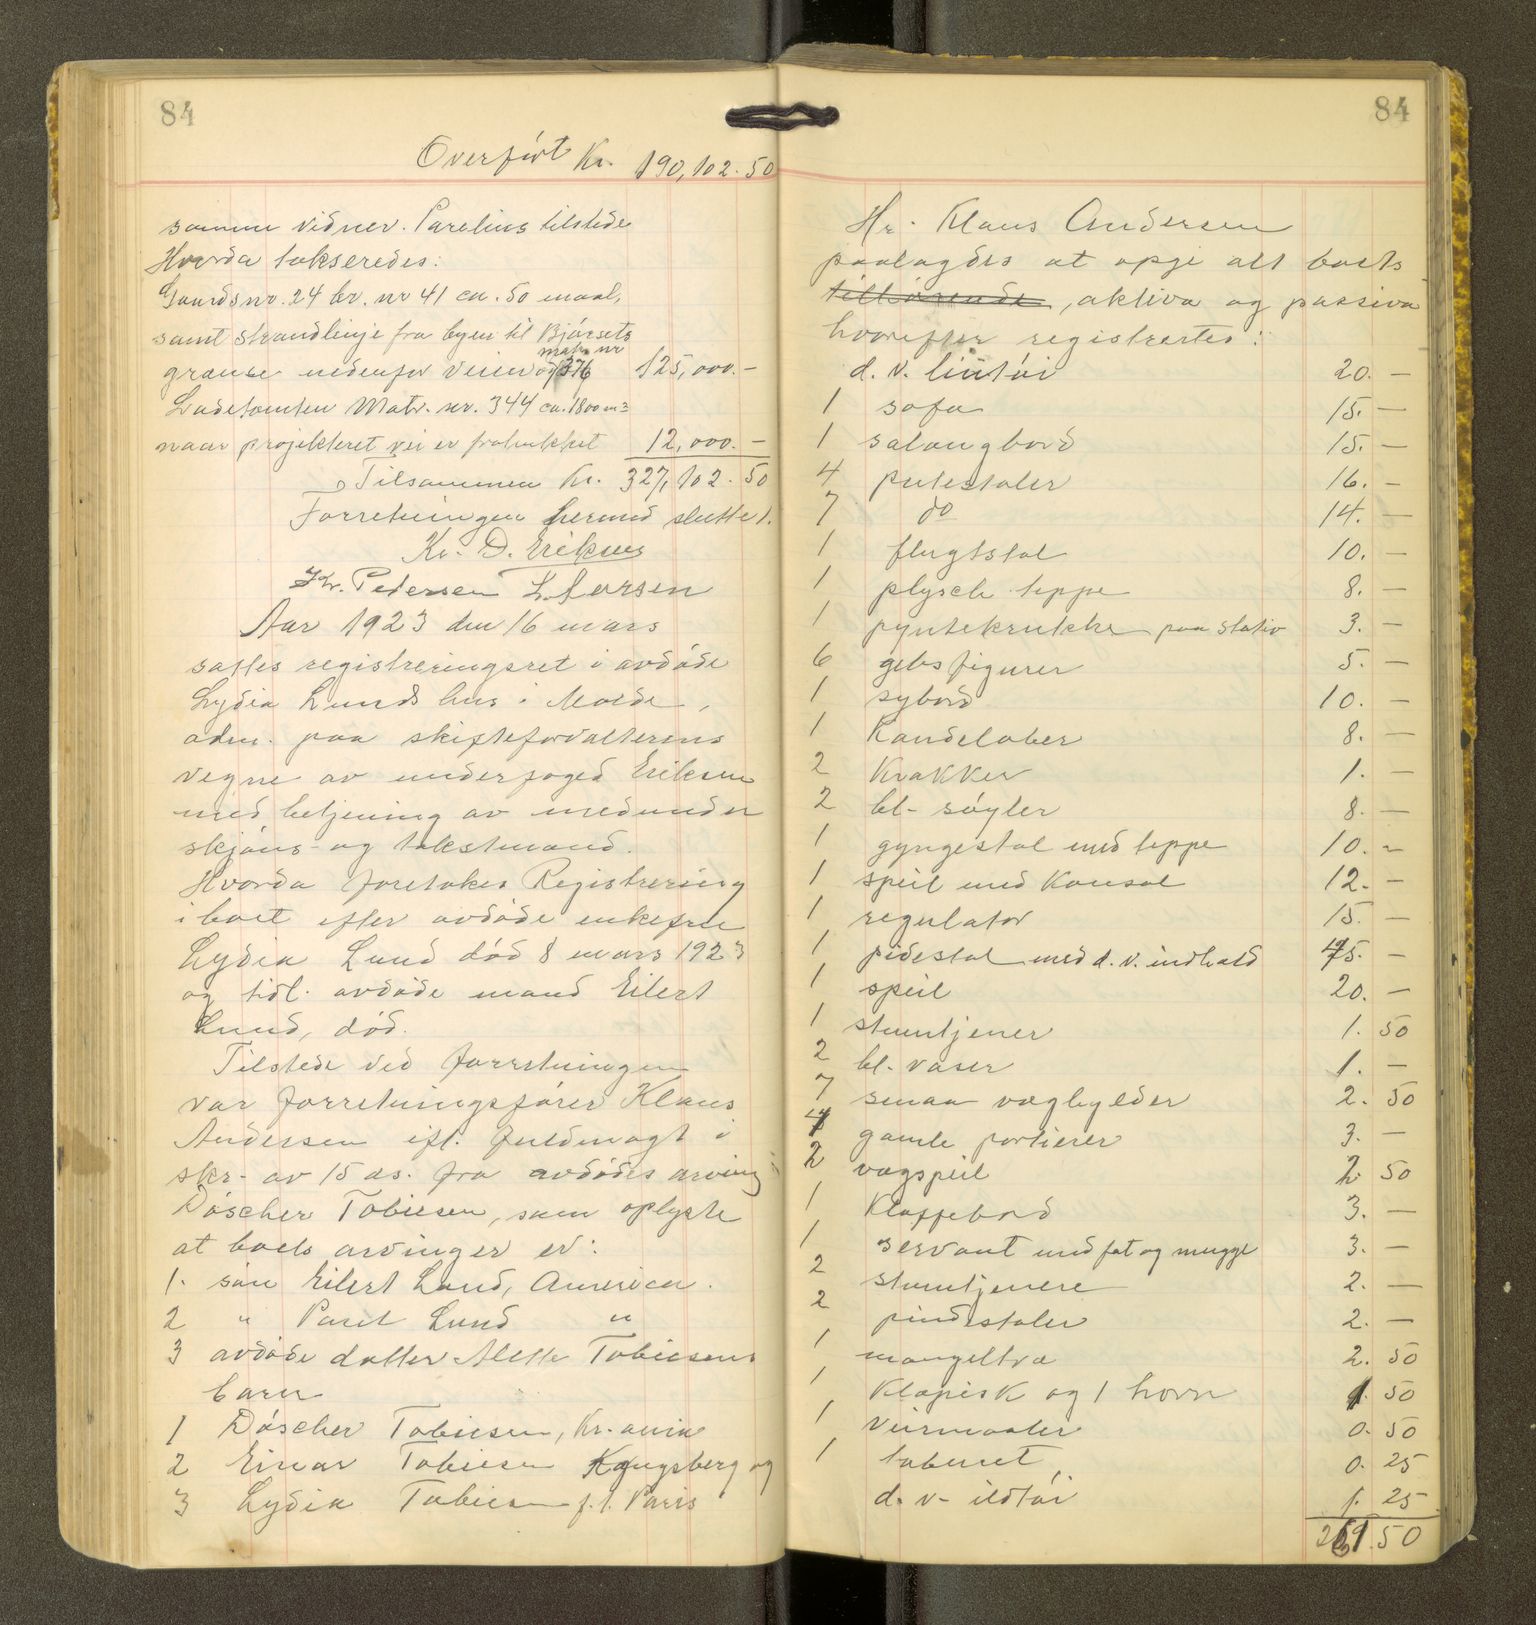 84
Overført Kr. 190,102.50
samme vidner. Parelius tilstede
Hvorda takseredes:
Gaardsnr. 24 br. nr 41 ca. 50 maal,
samt strandlinje fra byen til Bjørsets
matr. nr
grænse nedenfor veien og 376 125,000.-
Ladetomten Matr. nr. 344 ca. 1800 m2
naar projekteret vei er fratrukket 12,000.-
Tilsammen Kr. 327,102.50
Forretningen hermed sluttet.
Kr. D. Eriksen
Kr. Pedersen L. Larsen
Aar 1923 den 16 mars
sattes registreringsret i avdøde
Lydia Lunds hus i Molde,
adm. paa skifteforvalterens
vegne av underfoged Eriksen
med betjening av medunder
skjøns- og takstmænd.
Hvorda foretokes Registrering
i boet efter avdøde enkefru
Lydia Lund død 8 mars 1923
og tidl. avdøde mand Eilert
Lund, død.
Tilstede ved forretningen
var forretningsfører Klaus
Andersen ifl. fuldmagt i
skr. av 15 ds. fra avdødes arving
Döscher Tobiesen, som oplyste
at boets arvinger er:
1. søn Eilert Lund, America.
2 " Parel Lund "
3 avdøde datter Alette Tobiesens
barn
1 Döscher Tobiesen, Kr.ania
2 Einar Tobiesen Kongsberg og
3 Lydia Tobiesen f. t. Paris
84
Hr. Klaus Andersen
paalagdes at opgi alt boets
tilhørende, aktiva og passiva
hvorefter registrertes:
d. v. lintøi 20. —
1 sofa 15. —
1 salongbord 15. —
4 putestoler 16. —
7 do 14. —
1 flugtstol 10. —
1 plysch teppe 8. —
1 pyntekrukke paa stativ 3. —
6 gibsfigurer 5. —
1 sybord 10. —
1 Kandelaber 8. —
2 Krakker 1. —
2 bl- søyler 8. —
1 gyngestol med teppe 10. —
1 speil med Konsol 12. —
1 regulator 15. —
1 pidestal med d. v. indhold 15. —
1 speil 20. —
1 stumtjener 1. 50
2 bl- vaser 1. —
7 smaa væghylder 2. 50
4 gamle portierer 3. —
2 vægspeil 2. 50
1 Klaffebord 3. —
1 servant med fat og mugge 3. —
2 stumtjenere 2. —
2 pindestoler 2. —
1 mangeltræ 2. 50
1 Klapisk og 1 horn 1. 50
1 Veirmaaler 0. 50
1 taburet 0. 25
d. v- ildtøi 1. 25
261.50